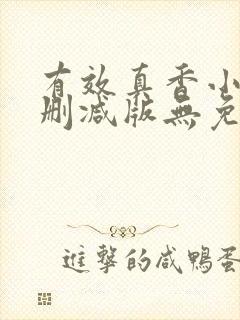 有效真香小
删减版無免
進擊的咸鴨蛋